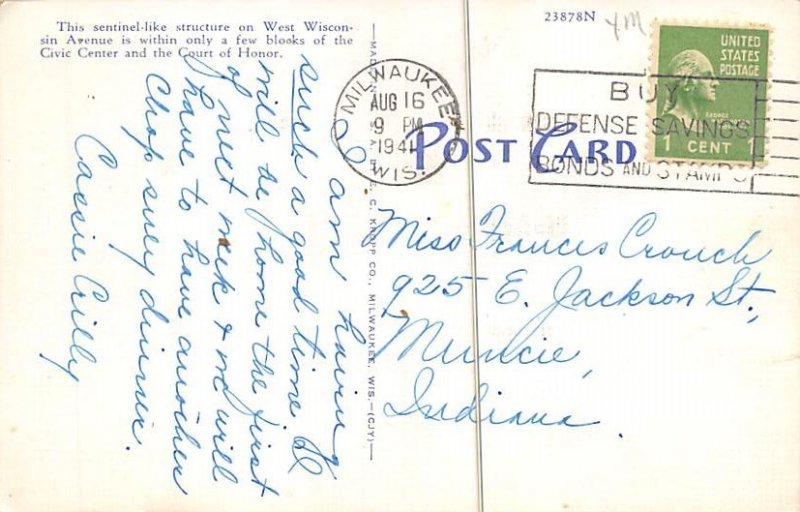 This sentinel-like structure on West Wiscon-
sin Avenue is within only a few blocks of the
Civic Center and the Court of Honor.
I am having
such a good time I
will be home the first
of next week & we will
have to have another
Chop suey dinner.
Cassie Crilly
C. KROPP CO., MILWAUKEE, WIS.—(CJY)—
23878N
MILWAUKEE
AUG 16
9 PM
1941
WIS.
POST CARD
BUY
DEFENSE SAVINGS
BONDS AND STAMPS
UNITED
STATES
POSTAGE
1 CENT 1
Miss Frances Crouch
925 E. Jackson St,
Muncie,
Indiana.